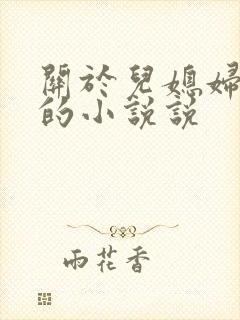 關於兒媳婦
的小説説
雨花香